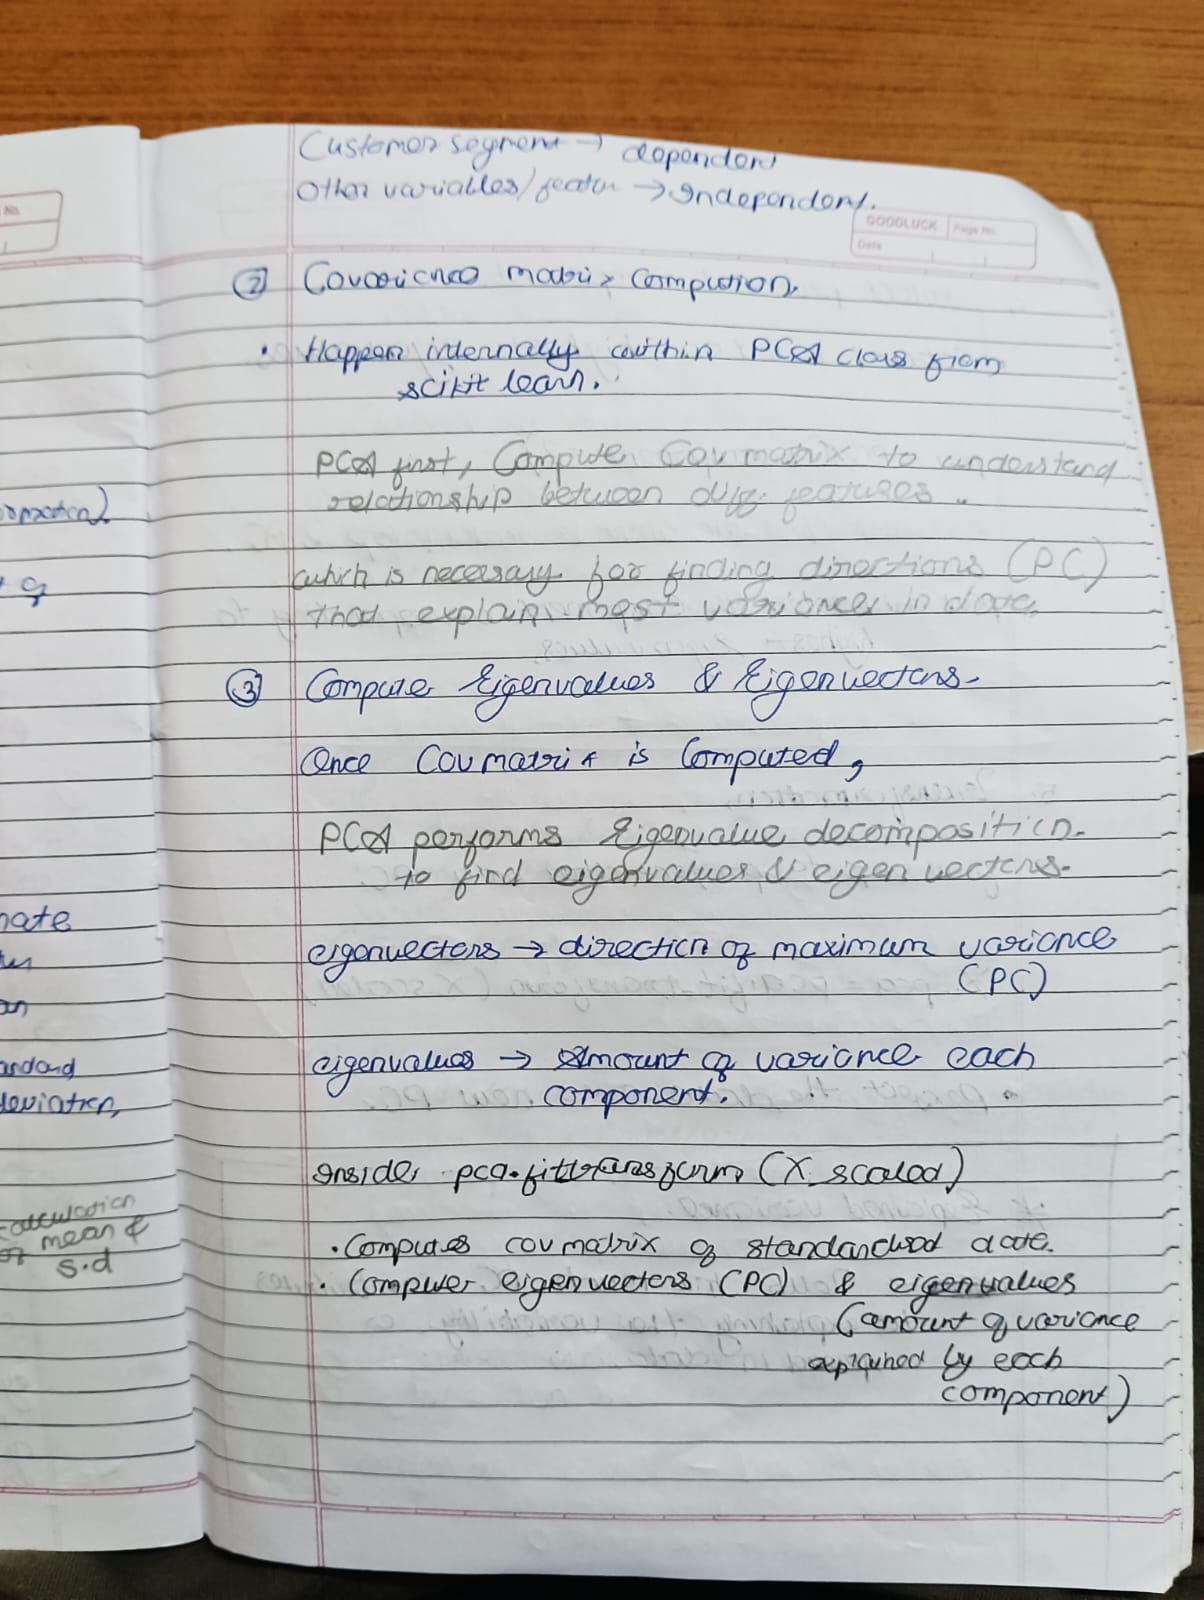 Customer segment → dependent
Other variables/featur → Independent.
No.
GOODLUCK Page No.
Date
② Covariance matrix Compution.
• Happen internally within PCA class from
scikit learn.
PCA first, Compute Cov matrix to understand
relationship between diff. features.
which is necessary for finding directions (PC)
that explain most variance in data.
③ Compute Eigenvalues & Eigenvectors.
Once Cov matrix is Computed,
PCA performs Eigenvalue decomposition.
to find eigenvalues & eigen vectors.
eigenvectors → direction of maximum variance
(PC)
eigenvalues → Amount of variance each
component.
Inside pca.fittransform (X_scaled)
• Computes cov matrix of standardised data.
• Computer eigenvectors (PC) & eigenvalues
(amount of variance
explained by each
component)
andard
deviation,
calculation
of mean &
s.d